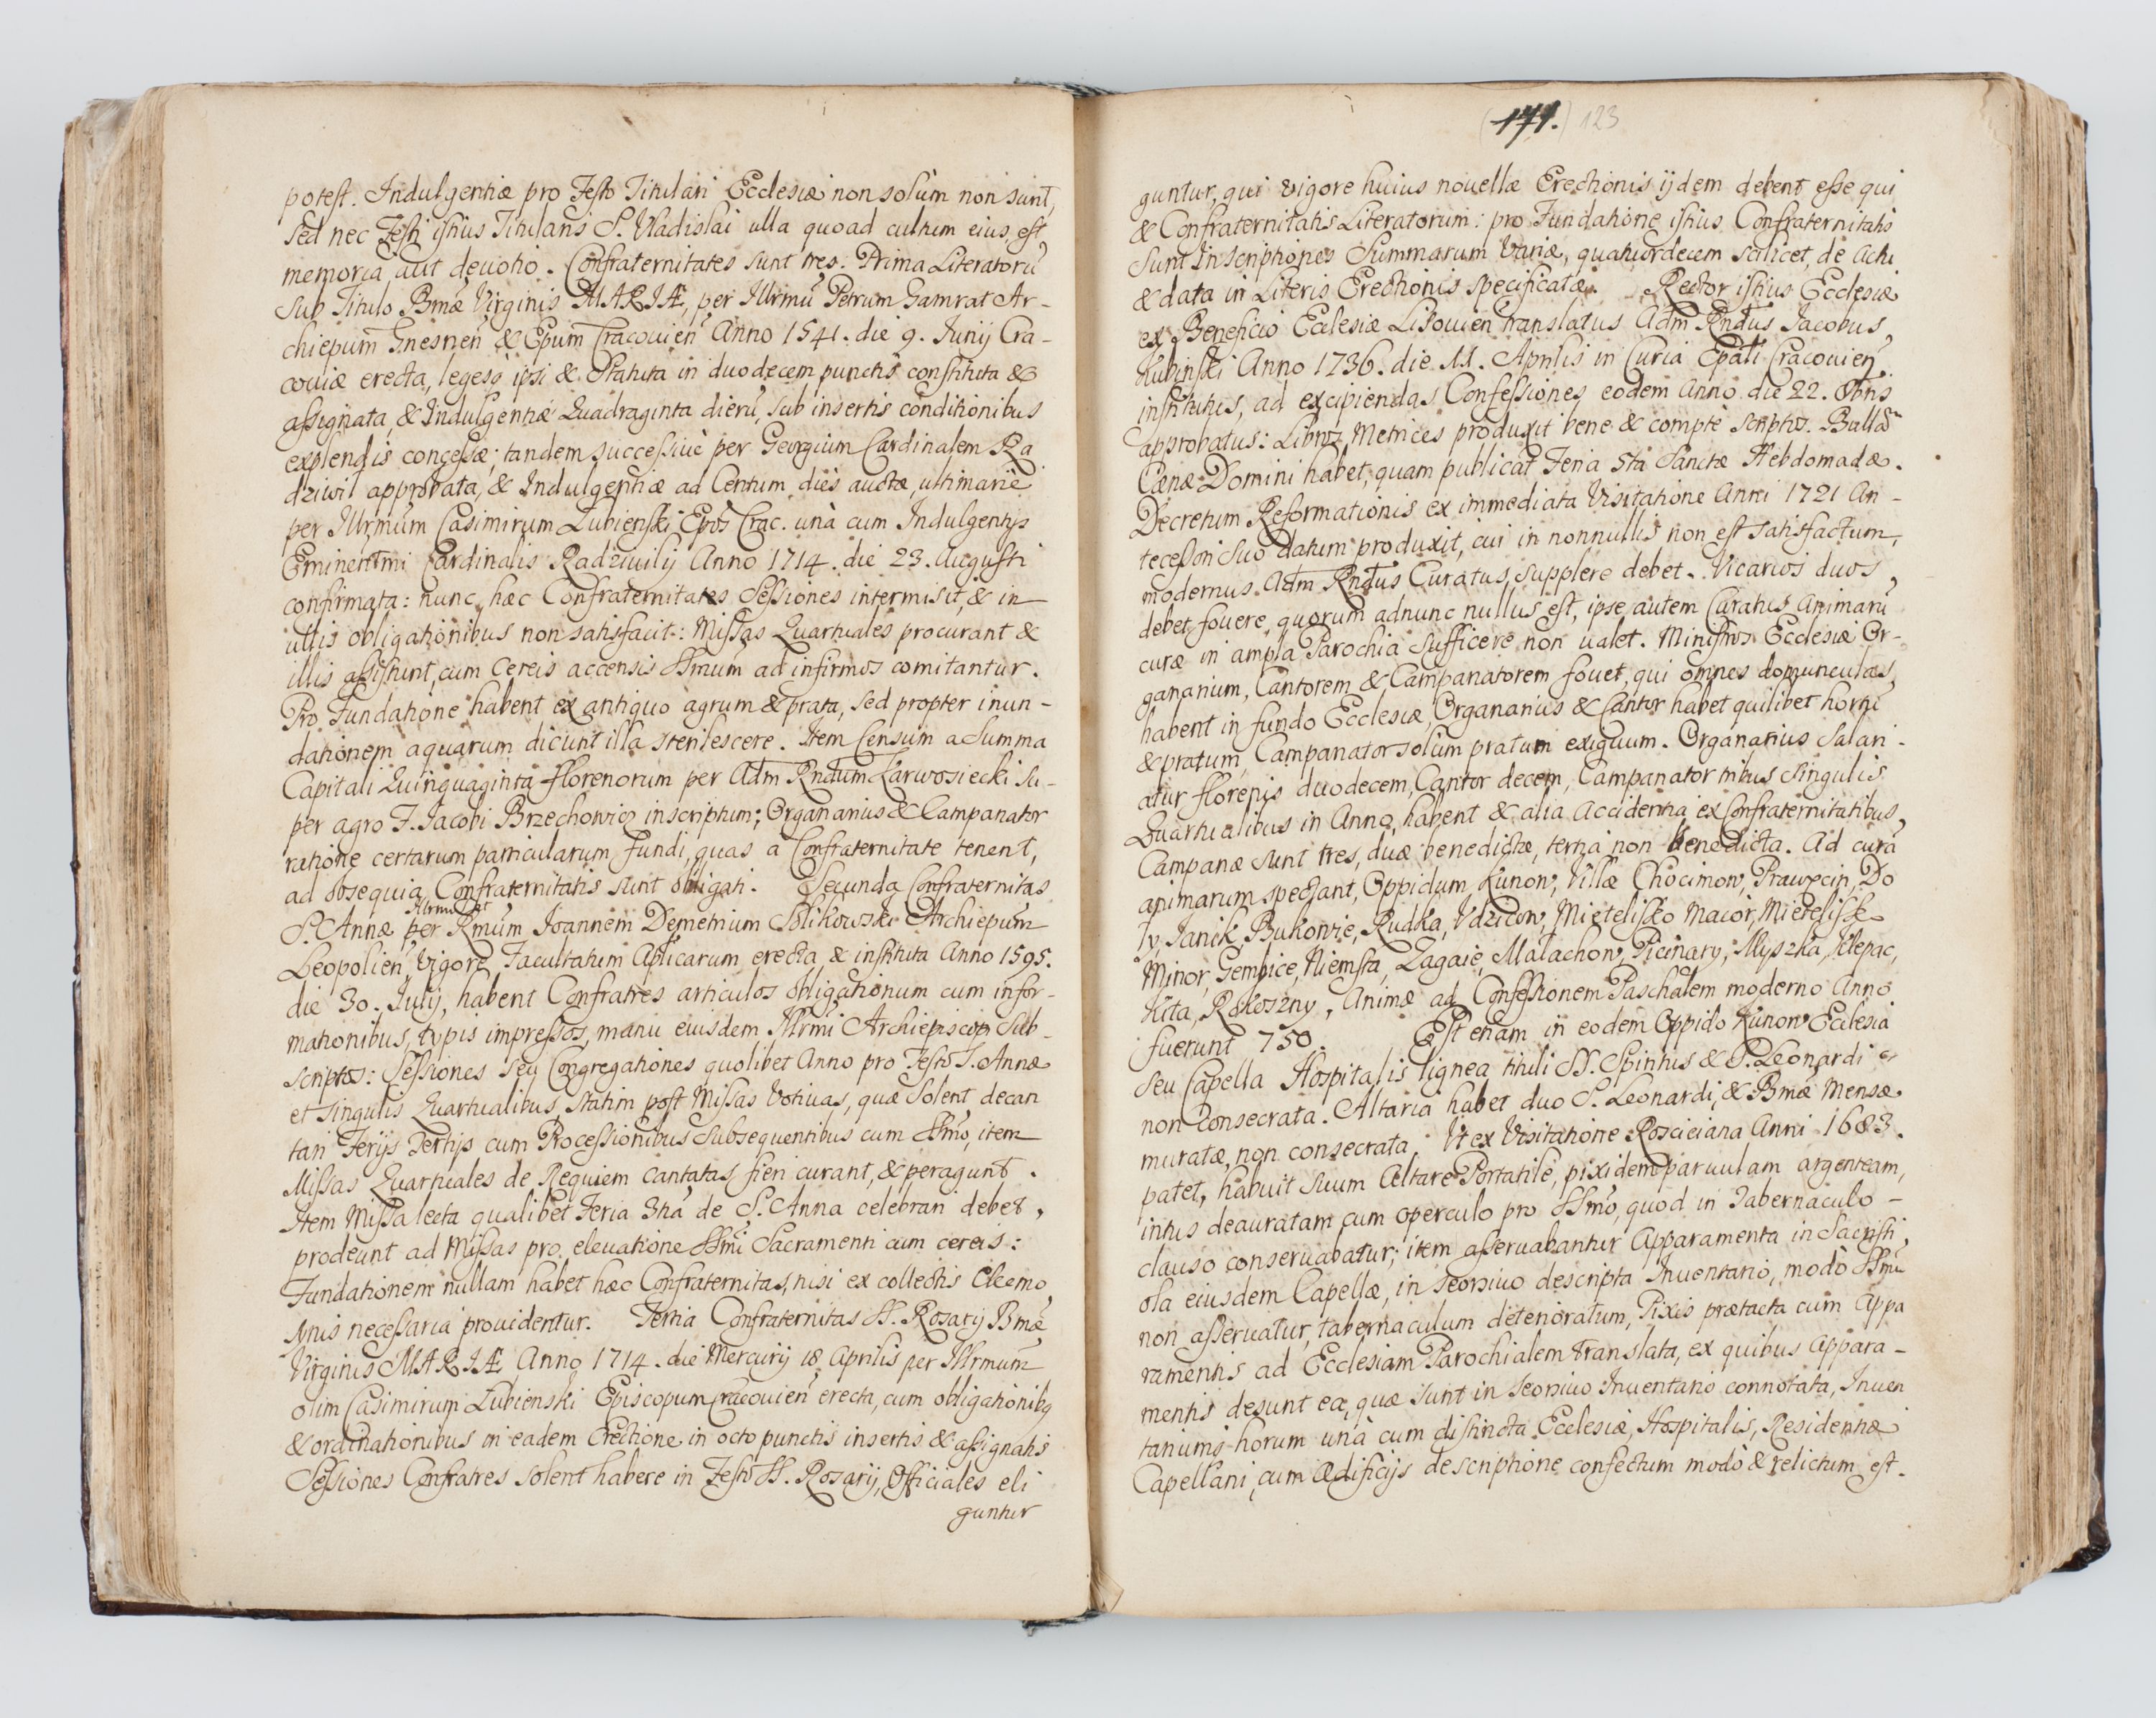 potest. Indulgentiæ pro Festo Titulari Ecclesiæ non solùm non sunt,
sed nec Festi istius Titularis S. Vladislai ulla quoad cultum eius est
memoria aut deuotio. Confraternitates sunt tres. Prima Literatorũ
sub Titulo Bmæ Virginis MARIÆ, per Illrmũ Petrum Gamrat Ar-
chiepum Gnesnen̄ & Epum Cracouien̄ Anno 1541. die 9. Junij Cra-
couiæ erecta, leges ipsi & Statuta in duodecem punctis constituta &
assignata, & Indulgentiæ Quadraginta dierũ, sub insertis conditionibus
explendis concessæ; tandem successiuè per Georgium Cardinalem Ra
dziwil approbata, & Indulgentiæ ad Centum dies auctæ, ultimariè
per Illrmum Casimirum Łubienski Epũ Crac. unà cum Indulgentijs
Eminentmi Cardinalis Radziuilij Anno 1714. die 23. Augusti
confirmata: nunc hæc Confraternitates Sessiones intermisit, & in
illis obligationibus non satisfacit: Missas Quartuales procurant &
illis assistunt, cum Cereis accensis SSmum ad infirmos comitantur.
Pro Fundatione habent ex antiquo agrum & prata, sed propter inun-
dationem aquarum dicunt illa sterilescere. Item Censum a Summa
Capitali Quinquaginta florenorum per Adm Rndum Karwosiecki su-
per agro F. Jacobi Brzechowicz inscriptum; Organarius & Campanator
ratione certarum particularum fundi, quas a Confraternitate tenent,
ad obsequia Confraternitatis sunt obligati. Secunda Confraternitas
Illrmũ et
S. Annæ per Rmum Joannem Demetrium Solikowski Archiepum
Leopolien̄ vigore Facultatum Aplicarum erecta & instituta Anno 1595.
die 30. Julij, habent Confratres articulos obligationum cum infor-
mationibus, typis impressos, manu eiusdem Illrmi Archiepiscopi sub-
scriptos: Sessiones seu Congregationes quolibet Anno pro Festo S. Annæ
et singulis Quartualibus, statim post Missas Votiuas, quæ solent decan
tari Ferijs Tertijs cum Processionibus subsequentibus cum SSmo, item
Missas Quartuales de Requiem cantatas fieri curant, & peragunt.
Item Missa lecta qualibet Feria 3tia de S. Anna celebrari debet,
prodeunt ad Missas pro eleuatione SSmi Sacramenti cum cereis:
Fundationem nullam habet hæc Confraternitas, nisi ex collectis Eleemo
synis necessaria prouidentur. Tertia Confraternitas SS. Rosarij Bmæ
Virginis MARIÆ Anno 1714. die Mercurij 18 Aprilis per Illrmum
olim Casimirum Łubienski Episcopum Cracouien̄ erecta, cum obligationibq
& ordinationibus in eadem Erectione in octo punctis insertis & assignatis
Sessiones Confratres solent habere in Festo SS. Rosarij, Officiales eli
guntur
(171.) 123
guntur, qui vigore huius nouellæ Erectionis ijdem debent esse qui
& Confraternitatis Literatorum: pro Fundatione istius Confraternitatis
sunt Inscriptiones Summarum Variæ, quatuordecem scilicet, de Acti
& data in Literis Erectionis specificatæ. Rector istius Ecclesiæ
ex Beneficio Ecclesiæ translatus Adm Rndus Jacobus
Kubinski Anno 1736. die 11. Aprilis in Curia Epali Cracouien̄
institutus, ad excipiendas Confessiones eodem Anno die 22. 8bris
approbatus: Libros Metrices produxit bene & comptè scriptos. Bullã
Cænæ Domini habet, quam publicat Feria 5ta Sanctæ Hebdomadæ.
Decretum Reformationis ex immediata Visitatione Anni 1721 An-
tecessori suo datum produxit, cui in nonnullis non est satisfactum,
modernus Adm Rndus Curatus supplere debet. Vicarios duos
debet fouere, quorum adnunc nullus est, ipse autem Curatus Animarũ
curæ in ampla Parochia sufficere non ualet. Ministros Ecclesiæ Or-
ganarium, Cantorem & Campanatorem fouet, qui omnes domunculas
habent in fundo Ecclesiæ, Organarius & Cantor habet quilibet horti
& pratum, Campanator solum pratum exiguum. Organarius Salari-
atur florenis duodecem, Cantor decem, Campanator tribus singulis
Quartualibus in Anno, habent & alia Accidentia ex Confraternitatibus,
Campanæ sunt tres, duæ benedictæ, tertia non benedicta. Ad curã
animarum spectant, Oppidum Kunow, Villæ Chocimow, Prawęcin, Do
ły, Janik, Bukowie, Rudka, Udzicow, Mieteliśko Maior, Mieteliśk
Minor, Gembice, Niemsta, Zagaie, Małachow, Picinary, Myszka, Klepac,
Kita, Rokoszny, Animæ ad Confessionem Paschalem moderno Anno
fuerunt 750. Est etiam in eodem Oppido Kunow Ecclesia
seu Capella Hospitalis lignea tituli SS. Spiritus & S. Leonardi
non consecrata. Altaria habet duo S. Leonardi, & Bmæ Mensæ
muratæ, non consecrata. Ut ex Visitatione Roscieiana Anni 1683.
patet, habuit suum Altare Portatile, pixidem paruulam argenteam,
intus deauratam cum operculo pro SSmo, quod in Tabernaculo
clauso conseruabatur; item asseruabantur Apparamenta in Sacristi
ola eiusdem Capellæ, in seorsiuo descripta Inuentario, modò SSmũ
non asseruatur, tabernaculum deterioratum, Pixis prætacta cum Appa
ramentis ad Ecclesiam Parochialem translata, ex quibus Appara-
mentis desunt ea, quæ sunt in seorsiuo Inuentario connotata, Inuen
tarium horum unà cum distincta Ecclesiæ, Hospitalis, Residentiæ
Capellani, cum Ædificijs descriptione confectum modò & relictum est.